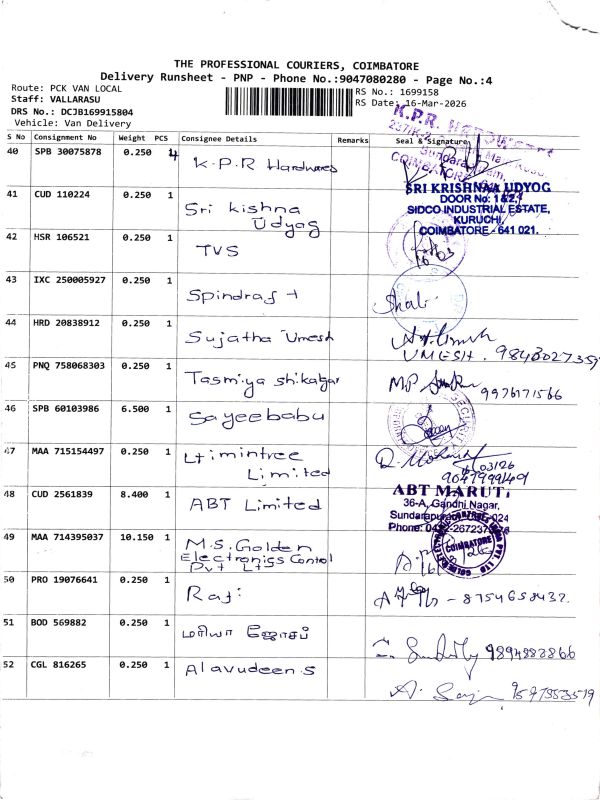 THE PROFESSIONAL COURIERS, COIMBATORE
Delivery Runsheet - PNP - Phone No.:9047080280 - Page No.:4
Route: PCK VAN LOCAL
Staff: VALLARASU
DRS No.: DCJB169915804
Vehicle: Van Delivery
RS No.: 1699158
RS Date: 16-Mar-2026
S No Consignment No Weight PCS Consignee Details Remarks Seal & Signature
40 SPB 30075878 0.250 4 K.P.R Hardwares
K.P.R.
COIMBATORE
41 CUD 110224 0.250 1 Sri kishna
Udyag
SRI KRISHNAA UDYOG
DOOR No: 1&2,
SIDCO INDUSTRIAL ESTATE,
KURUCHI,
COIMBATORE - 641 021.
42 HSR 106521 0.250 1 TVS
16/03
43 IXC 250005927 0.250 1 Spindraft
Shali
44 HRD 20838912 0.250 1 Sujatha Umesh
UMESH. 9843027359
45 PNQ 758068303 0.250 1 Tasmiya shikalgar
MP 9976171566
46 SPB 60103986 6.500 1 Sayeebabu
47 MAA 715154497 0.250 1 Ltimintree
Limited
9047999491
48 CUD 2561839 8.400 1 ABT Limited
ABT MARUTI
36-A, Gandhi Nagar,
Sundarapuram
Phone: 0422-267237
49 MAA 714395037 10.150 1 M.S. Golden
Electronics Control
Pvt Lts
COIMBATORE
50 PRO 19076641 0.250 1 Raji
8754658432.
51 BOD 569882 0.250 1 மரியா ஜோசப்
9894882866
52 CGL 816265 0.250 1 Alavudeen S
9597353519